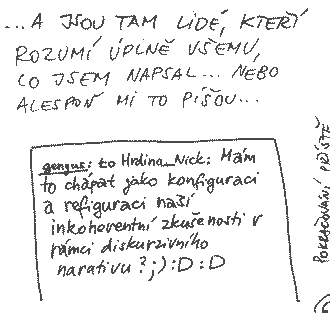 ...A JSOU TAM LIDÉ, KTEŘÍ
ROZUMÍ ÚPLNĚ VŠEMU,
CO JSEM NAPSAL... NEBO
ALESPOŇ MI TO PÍŠOU...
gengus: to Hrdina_Nick: Mám
to chápat jako konfiguraci
a refiguraci naší
inkoherentní zkušenosti v
rámci diskurzivního
narativu?;):D:D
POKRAČOVÁNÍ PŘÍŠTĚ